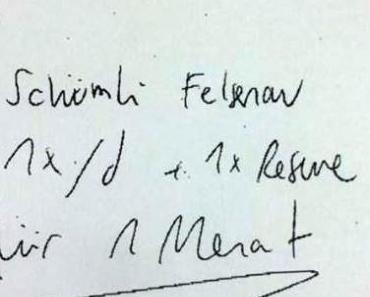 Schümli Felsenau
1x/d + 1x Reserve
für 1 Monat